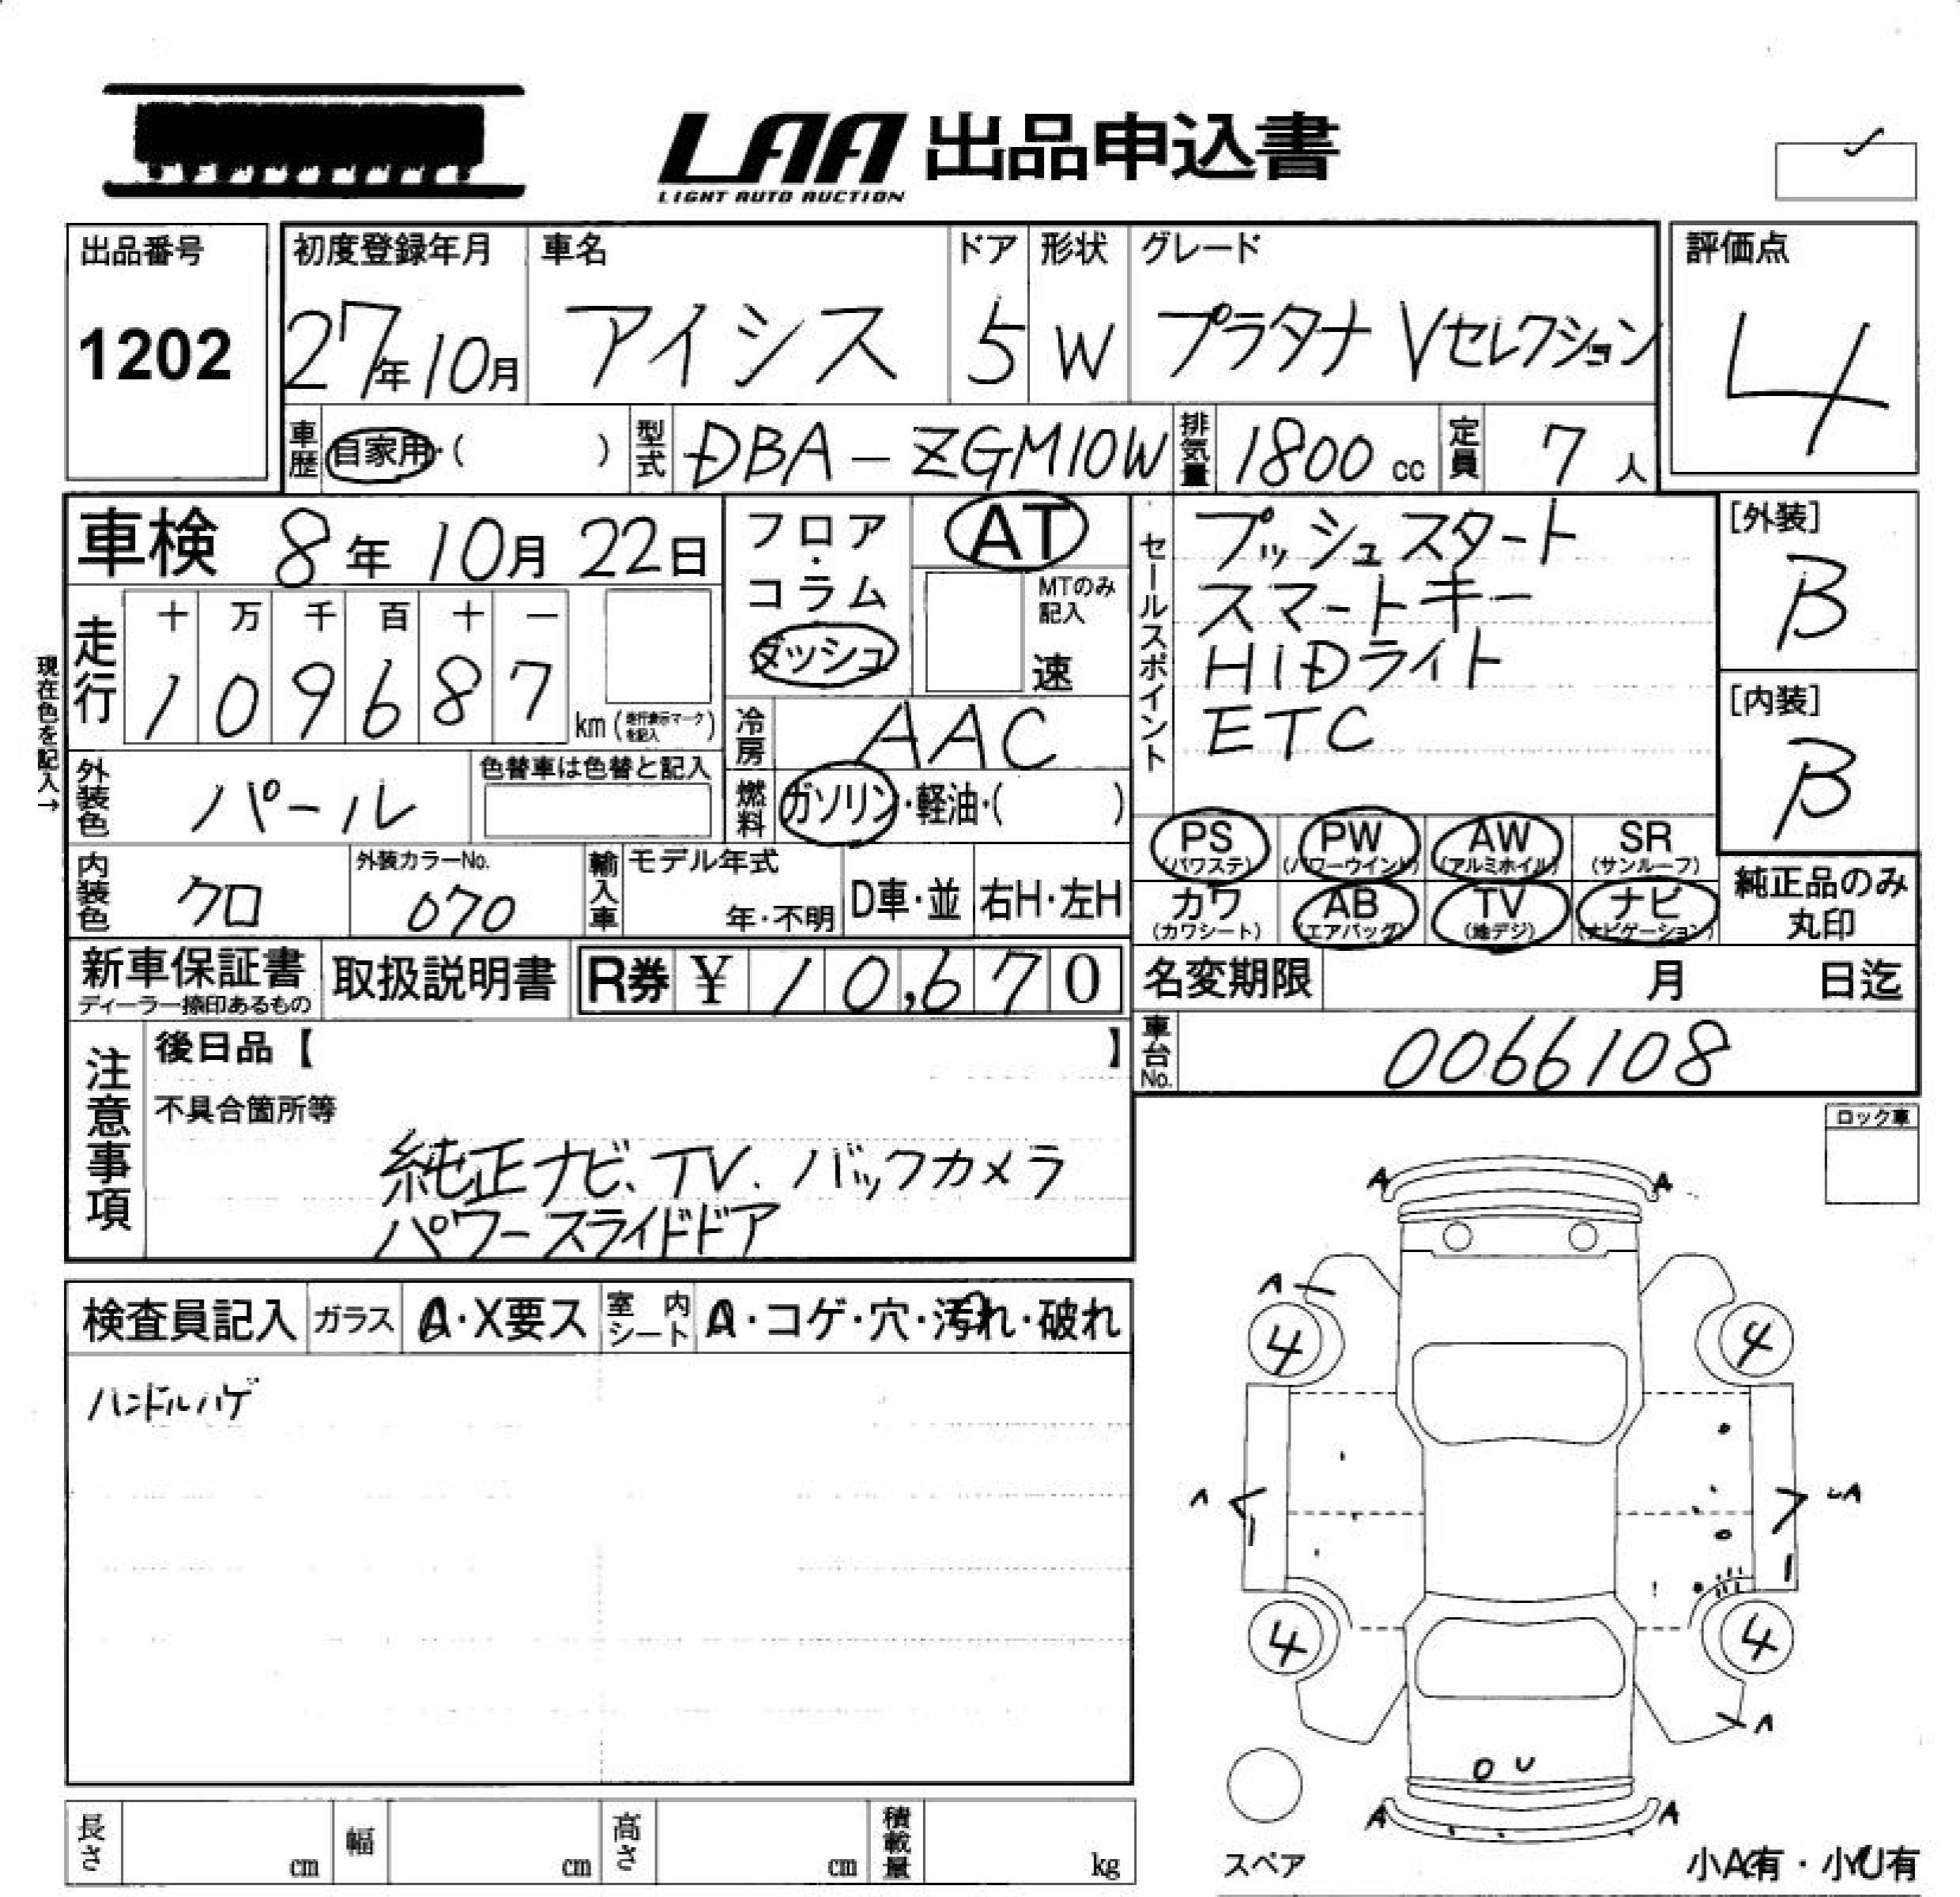 LAA 出品申込書
LIGHT AUTO AUCTION
出品番号
1202
初度登録年月
27年10月
車名
アイシス
ドア
5
形状
W
グレード
プラタナ Vセレクション
評価点
4
車歴
自家用・( )
型式
DBA-ZGM10W
排気量
1800 cc
定員
7 人
車検 8年 10月 22日
走行
十 万 千 百 十 一
1 0 9 6 8 7
km (走行表示マークを記入)
現在色を記入→
外装色
パール
色替車は色替と記入
内装色
クロ
外装カラーNo.
070
輸入車
モデル年式
年・不明
D車・並
右H・左H
フロア・コラム
ダッシュ
AT
MTのみ記入
速
冷房
AAC
燃料
ガソリン・軽油・( )
セールスポイント
プッシュスタート
スマートキー
HIDライト
ETC
[外装]
B
[内装]
B
PS (パワステ)
PW (パワーウインド)
AW (アルミホイル)
SR (サンルーフ)
カワ (カワシート)
AB (エアバッグ)
TV (地デジ)
ナビ (ナビゲーション)
純正品のみ丸印
新車保証書
ディーラー捺印あるもの
取扱説明書
R券 ¥ 10,670
名変期限 月 日迄
車台No.
0066108
注意事項
後日品【 】
不具合箇所等
純正ナビ、TV、バックカメラ
パワースライドドア
ロック車
検査員記入
ガラス
A・X要ス
室内シート
A・コゲ・穴・汚れ・破れ
ハンドルハゲ
A A
A
4 4
A A
4 4
A
U
A A
スペア
小A有・小U有
長さ cm
幅 cm
高さ cm
積載量 kg